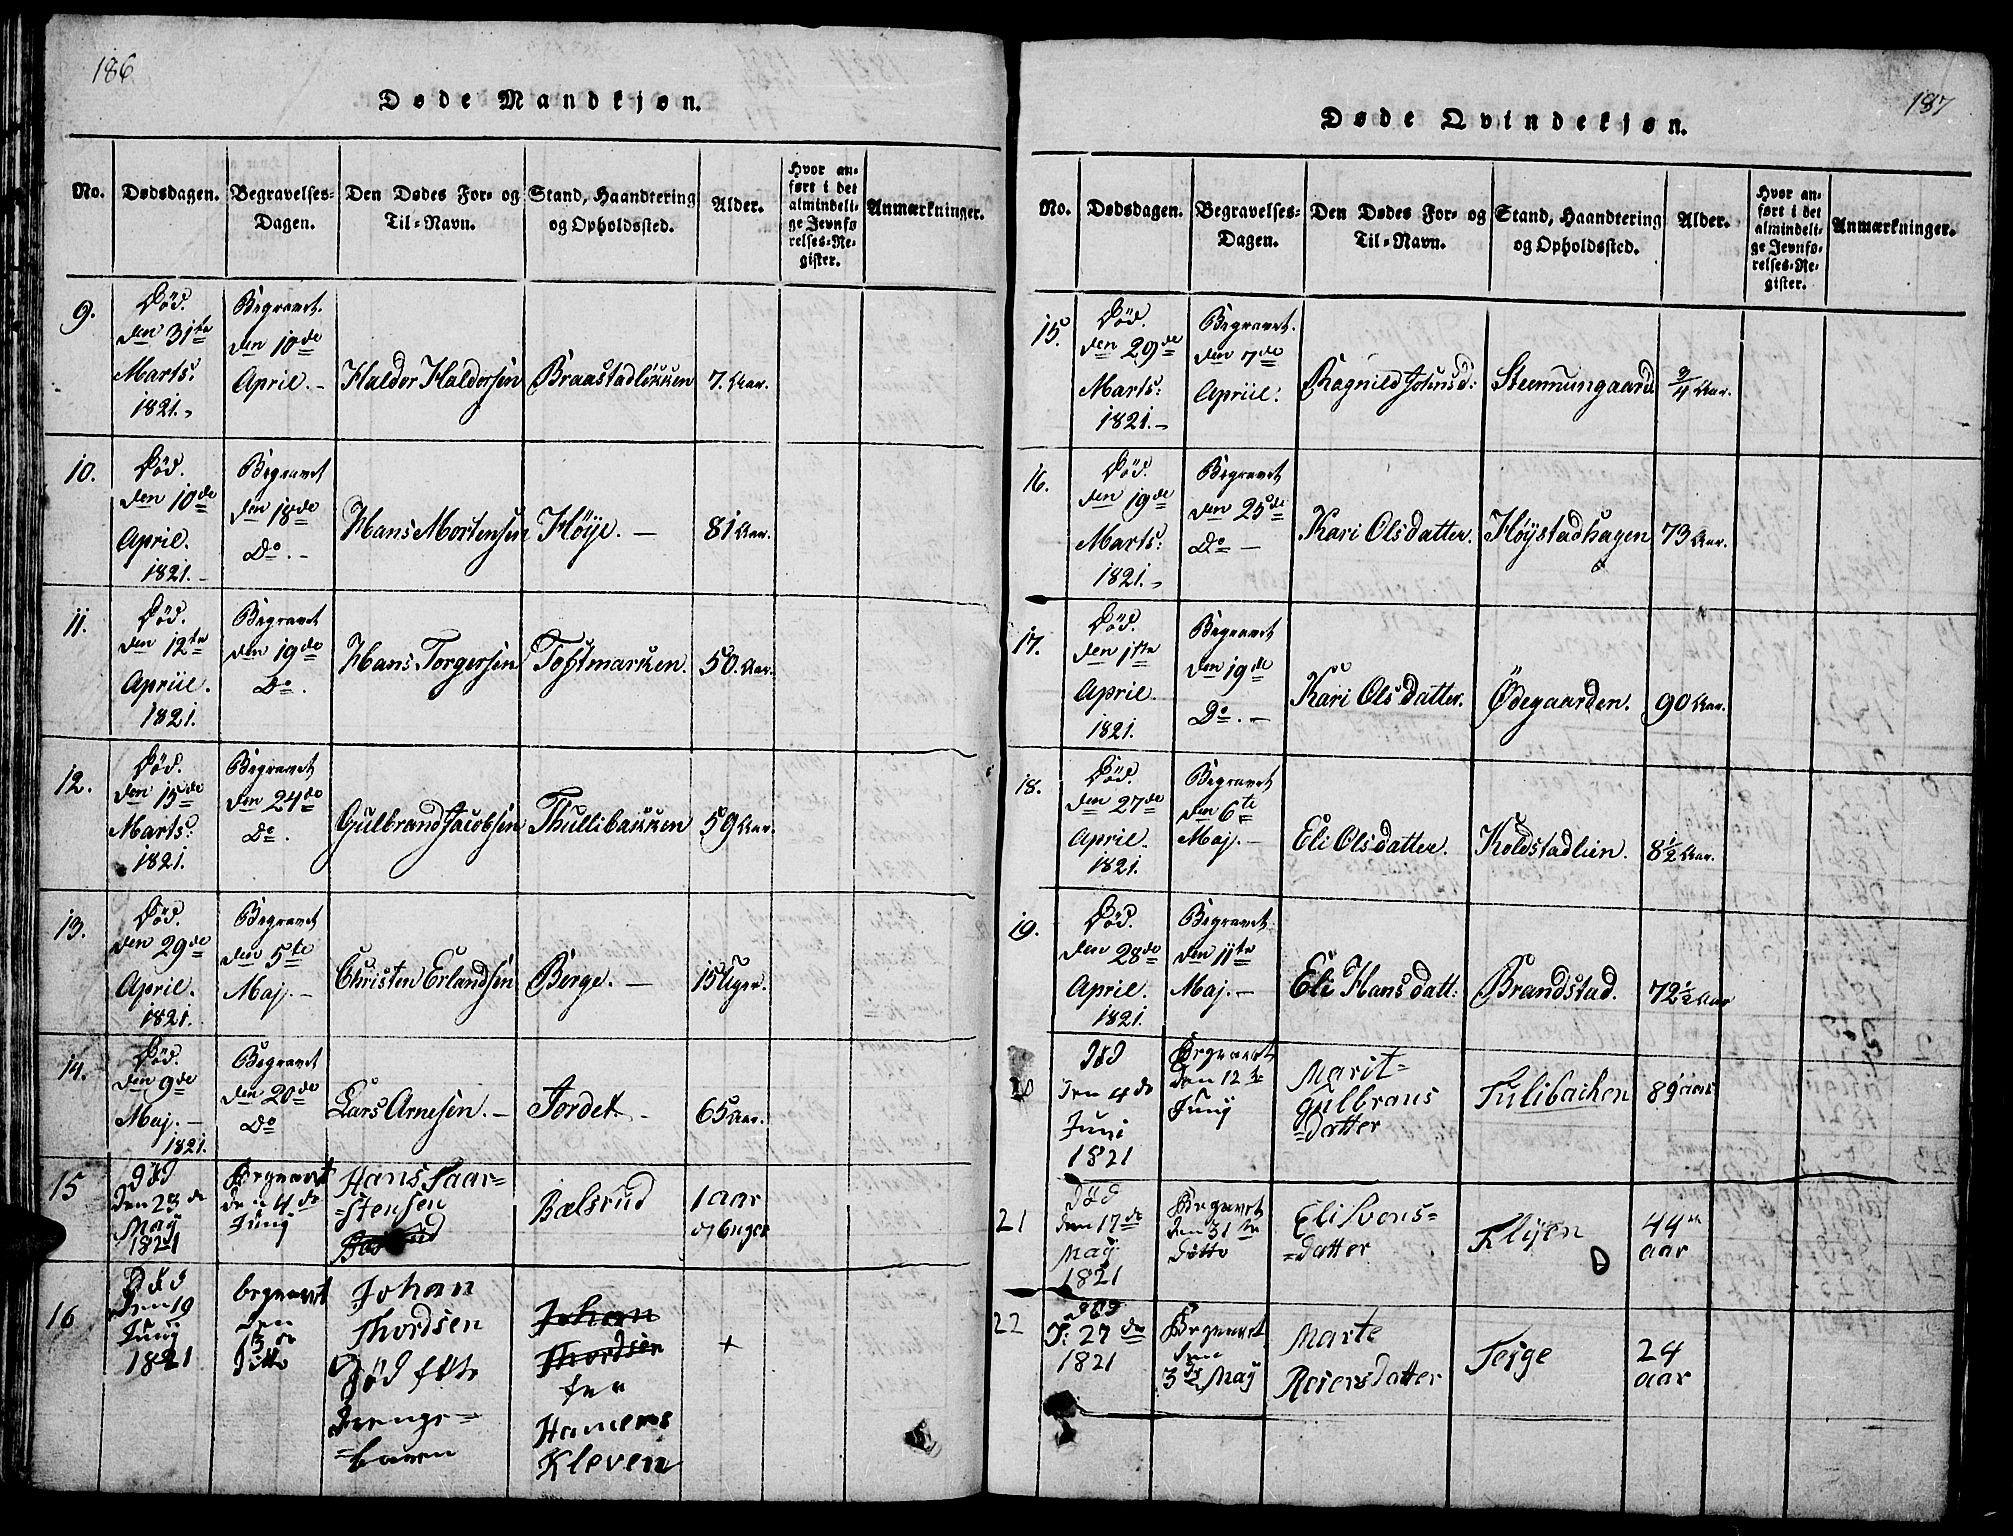 186
Døde Mandkjøn.
No. Dødsdagen. Begravelses-Dagen. Den Dødes For- og Til-Navn. Stand, Haandtering og Opholdssted. Alder. Hvor anført i det almindelige Jevnførelses-Register. Anmærkninger.
9. Død. den 31te Marts. 1821. Begravet. den 10de April. Haldor Haldorsen Braastadløkken 7. Aar.
10. Død. den 10de April. 1821. Begravet den 18de Do. Hans Mortensen Høije. 81 Aar.
11. Død. den 12te Apriil. 1821. Begravet den 19de Do. Hans Torgersen Toftmarken. 50. Aar.
12. Død. den 15de Marts: 1821. Begravet den 24de Do. Gulbrand Jacobsen Thullibakken 59 Aar.
13. Død. den 29de April. 1821. Begravet den 5te Maj. Christen Erlandsen Berge. 15 Uger.
14. Død. den 9de Maj. 1821. Begravet den 20de Do Lars Arnesen. Jordet 65 Aar.
15 død den 23de May 1821 Begravet den 4de Junij Hans Paar=
=stensen Bælsrud 1 aar og 6 uger
16 Død den 19 Junij 1821 begravet den 13de ditto Johan Thordsen Død født drenge=
=baren Johan Thordsen fra Hamers Kleven +
187
Døde Qvindekjøn.
No. Dødsdagen. Begravelses-Dagen. Den Dødes For- og Til-Navn. Stand, Haandtering og Opholdssted. Alder. Hvor anført i det almindelige Jevnførelses-Register. Anmærkninger.
15. Død. den 29de Marts: 1821. Begravet. den 7de Apriil: Ragnild Johnsd: Steennungaard 3/4 Aar.
16. Død. den 19de Marts: 1821. Begravet den 25de Do Kari Olsdatter. Høystadhagen 73 Aar.
17. Død. den 11te April. 1821. Begravet den 19de Do. Kari Olsdatter. Ødegaarden. 90 Aar.
18. Død. den 27de April. 1821. Begravet den 6te Maj. Eli Olsdatter. Koldstadlien. 8 1/2 Aar.
19. Død. den 28de April. 1821. Begravet. den 11te Maj. Eli Hansdatt: Brandstad. 72 1/2 Aar
20 død den 4de Juni 1821 Begravet den 12te Junij Marit=
Gulbrans
=datter Tulibachen 89 aar
21 Død den 17de May 1821 Begravet den 31te ditto Eli Svens=
=datter Kløjen 44 aar
22 død d: 27de 1821 Begravet den 3de May Marte Reiersdatter Forge 24 aar